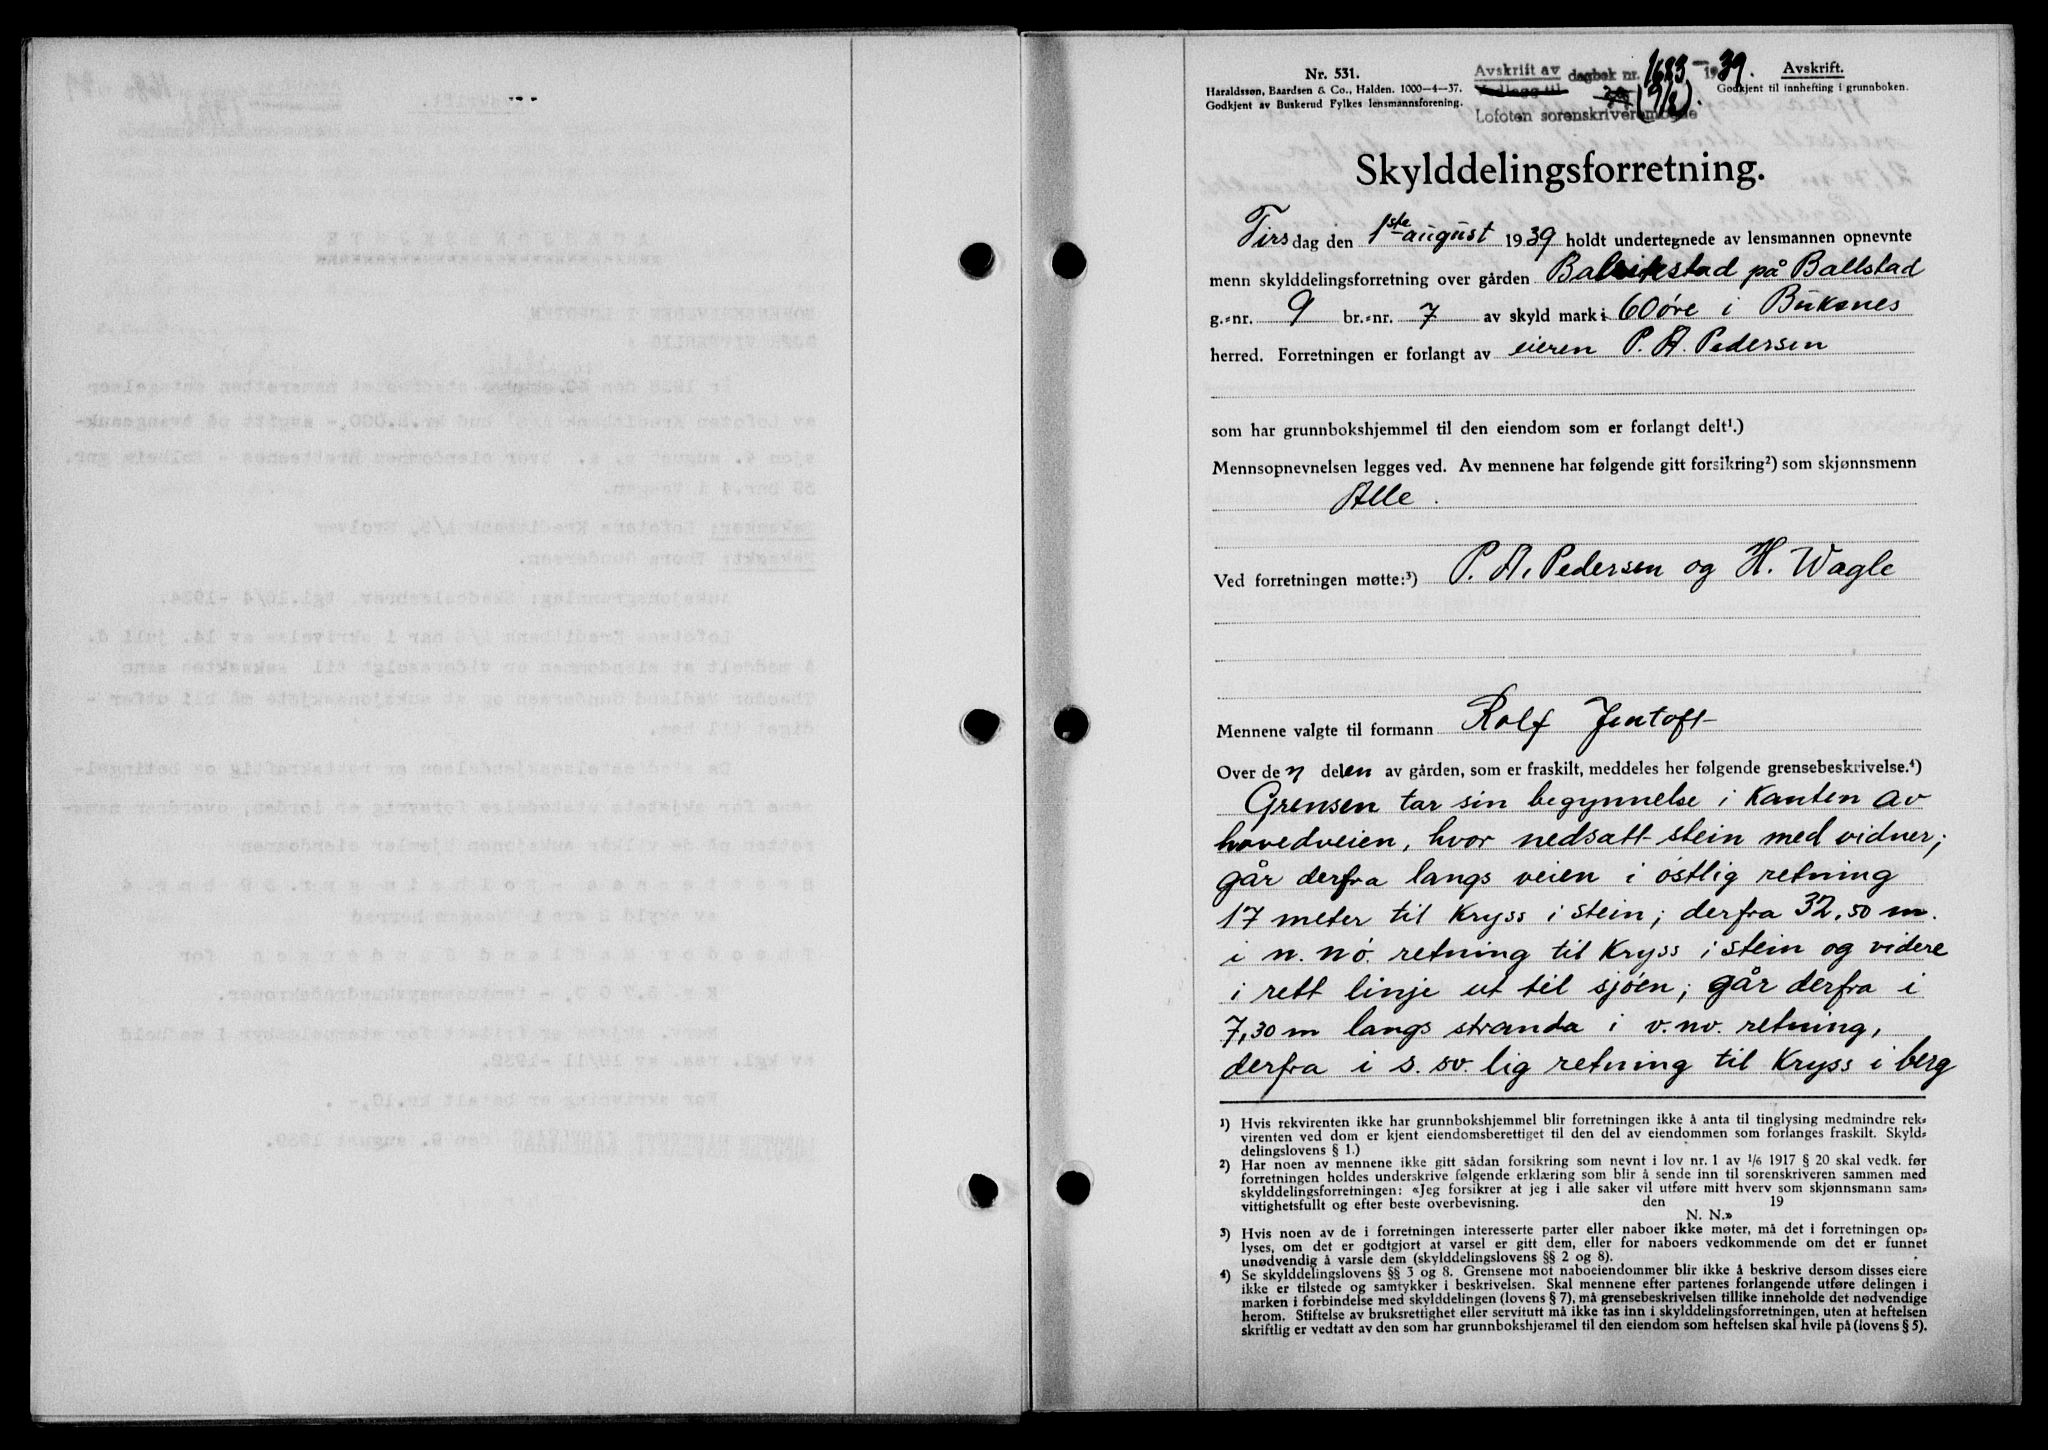 Nr. 531.
Haraldssøn, Baardsen & Co., Halden. 1000—4—37.
Godkjent av Buskerud Fylkes lensmannsforening.
Avskrift av dagbok nr. 1683 - 1939.
Vedlegg til (9/8).
Lofoten sorenskriverembede
Avskrift.
Godkjent til innhefting i grunnboken.
Skylddelingsforretning.
Tirsdag den 1ste august 1939 holdt undertegnede av lensmannen opnevnte
menn skylddelingsforretning over gården på Ballstad
g.-nr. 9 br.-nr. 7 av skyld mark: 60 øre i Buksnes
herred. Forretningen er forlangt av eieren P. A. Pedersen
som har grunnbokshjemmel til den eiendom som er forlangt delt¹.)
Mennsopnevnelsen legges ved. Av mennene har følgende gitt forsikring²) som skjønnsmenn
Alle.
Ved forretningen møtte:³) P. A. Pedersen og H. Wagle
Mennene valgte til formann Rolf Jentoft
Over den delen av gården, som er fraskilt, meddeles her følgende grensebeskrivelse.⁴)
Grensen tar sin begynnelse i kanten av
hovedveien, hvor nedsatt stein med vidner;
går derfra langs veien i østlig retning
17 meter til kryss i stein; derfra 32,50 m.
i n. nø. retning til kryss i stein og videre
i rett linje ut til sjøen; går derfra i
7,30 m langs stranda i v. nv. retning,
derfra i s. sv. lig retning til kryss i berg
¹) Hvis rekvirenten ikke har grunnbokshjemmel blir forretningen ikke å anta til tinglysing medmindre rek-
virenten ved dom er kjent eiendomsberettiget til den del av eiendommen som forlanges fraskilt. Skyld-
delingslovens § 1.)
²) Har noen av mennene ikke gitt sådan forsikring som nevnt i lov nr. 1 av 1/6 1917 § 20 skal vedk. før
forretningen holdes underskrive følgende erklæring som blir å sende inn til sorenskriveren sammen med
skylddelingsforretningen: «Jeg forsikrer at jeg i alle saker vil utføre mitt hverv som skjønnsmann sam-
vittighetsfullt og efter beste overbevisning. den 19
N. N.»
³) Hvis noen av de i forretningen interesserte parter eller naboer ikke møter, må det i forretningen op-
lyses, om det er godtgjort at varsel er gitt dem, eller for naboers vedkommende om det er funnet
unødvendig å varsle dem (skylddelingslovens §§ 2 og 8).
⁴) Se skylddelingslovens §§ 3 og 8. Grensene mot naboeiendommer blir ikke å beskrive dersom disses eiere
ikke er tilstede og samtykker i beskrivelsen. Skal mennene efter partenes forlangende utføre delingen i
marken i forbindelse med skylddelingen (lovens § 7), må grensebeskrivelsen tillike inneholde det nødvendige
herom. Stiftelse av bruksrettighet eller servitutt må ikke tas inn i skylddelingsforretningen, uten at heftelsen
skriftlig er vedtatt av den som har grunnbokshjemmel til den eiendom som heftelsen skal hvile på (lovens § 5).